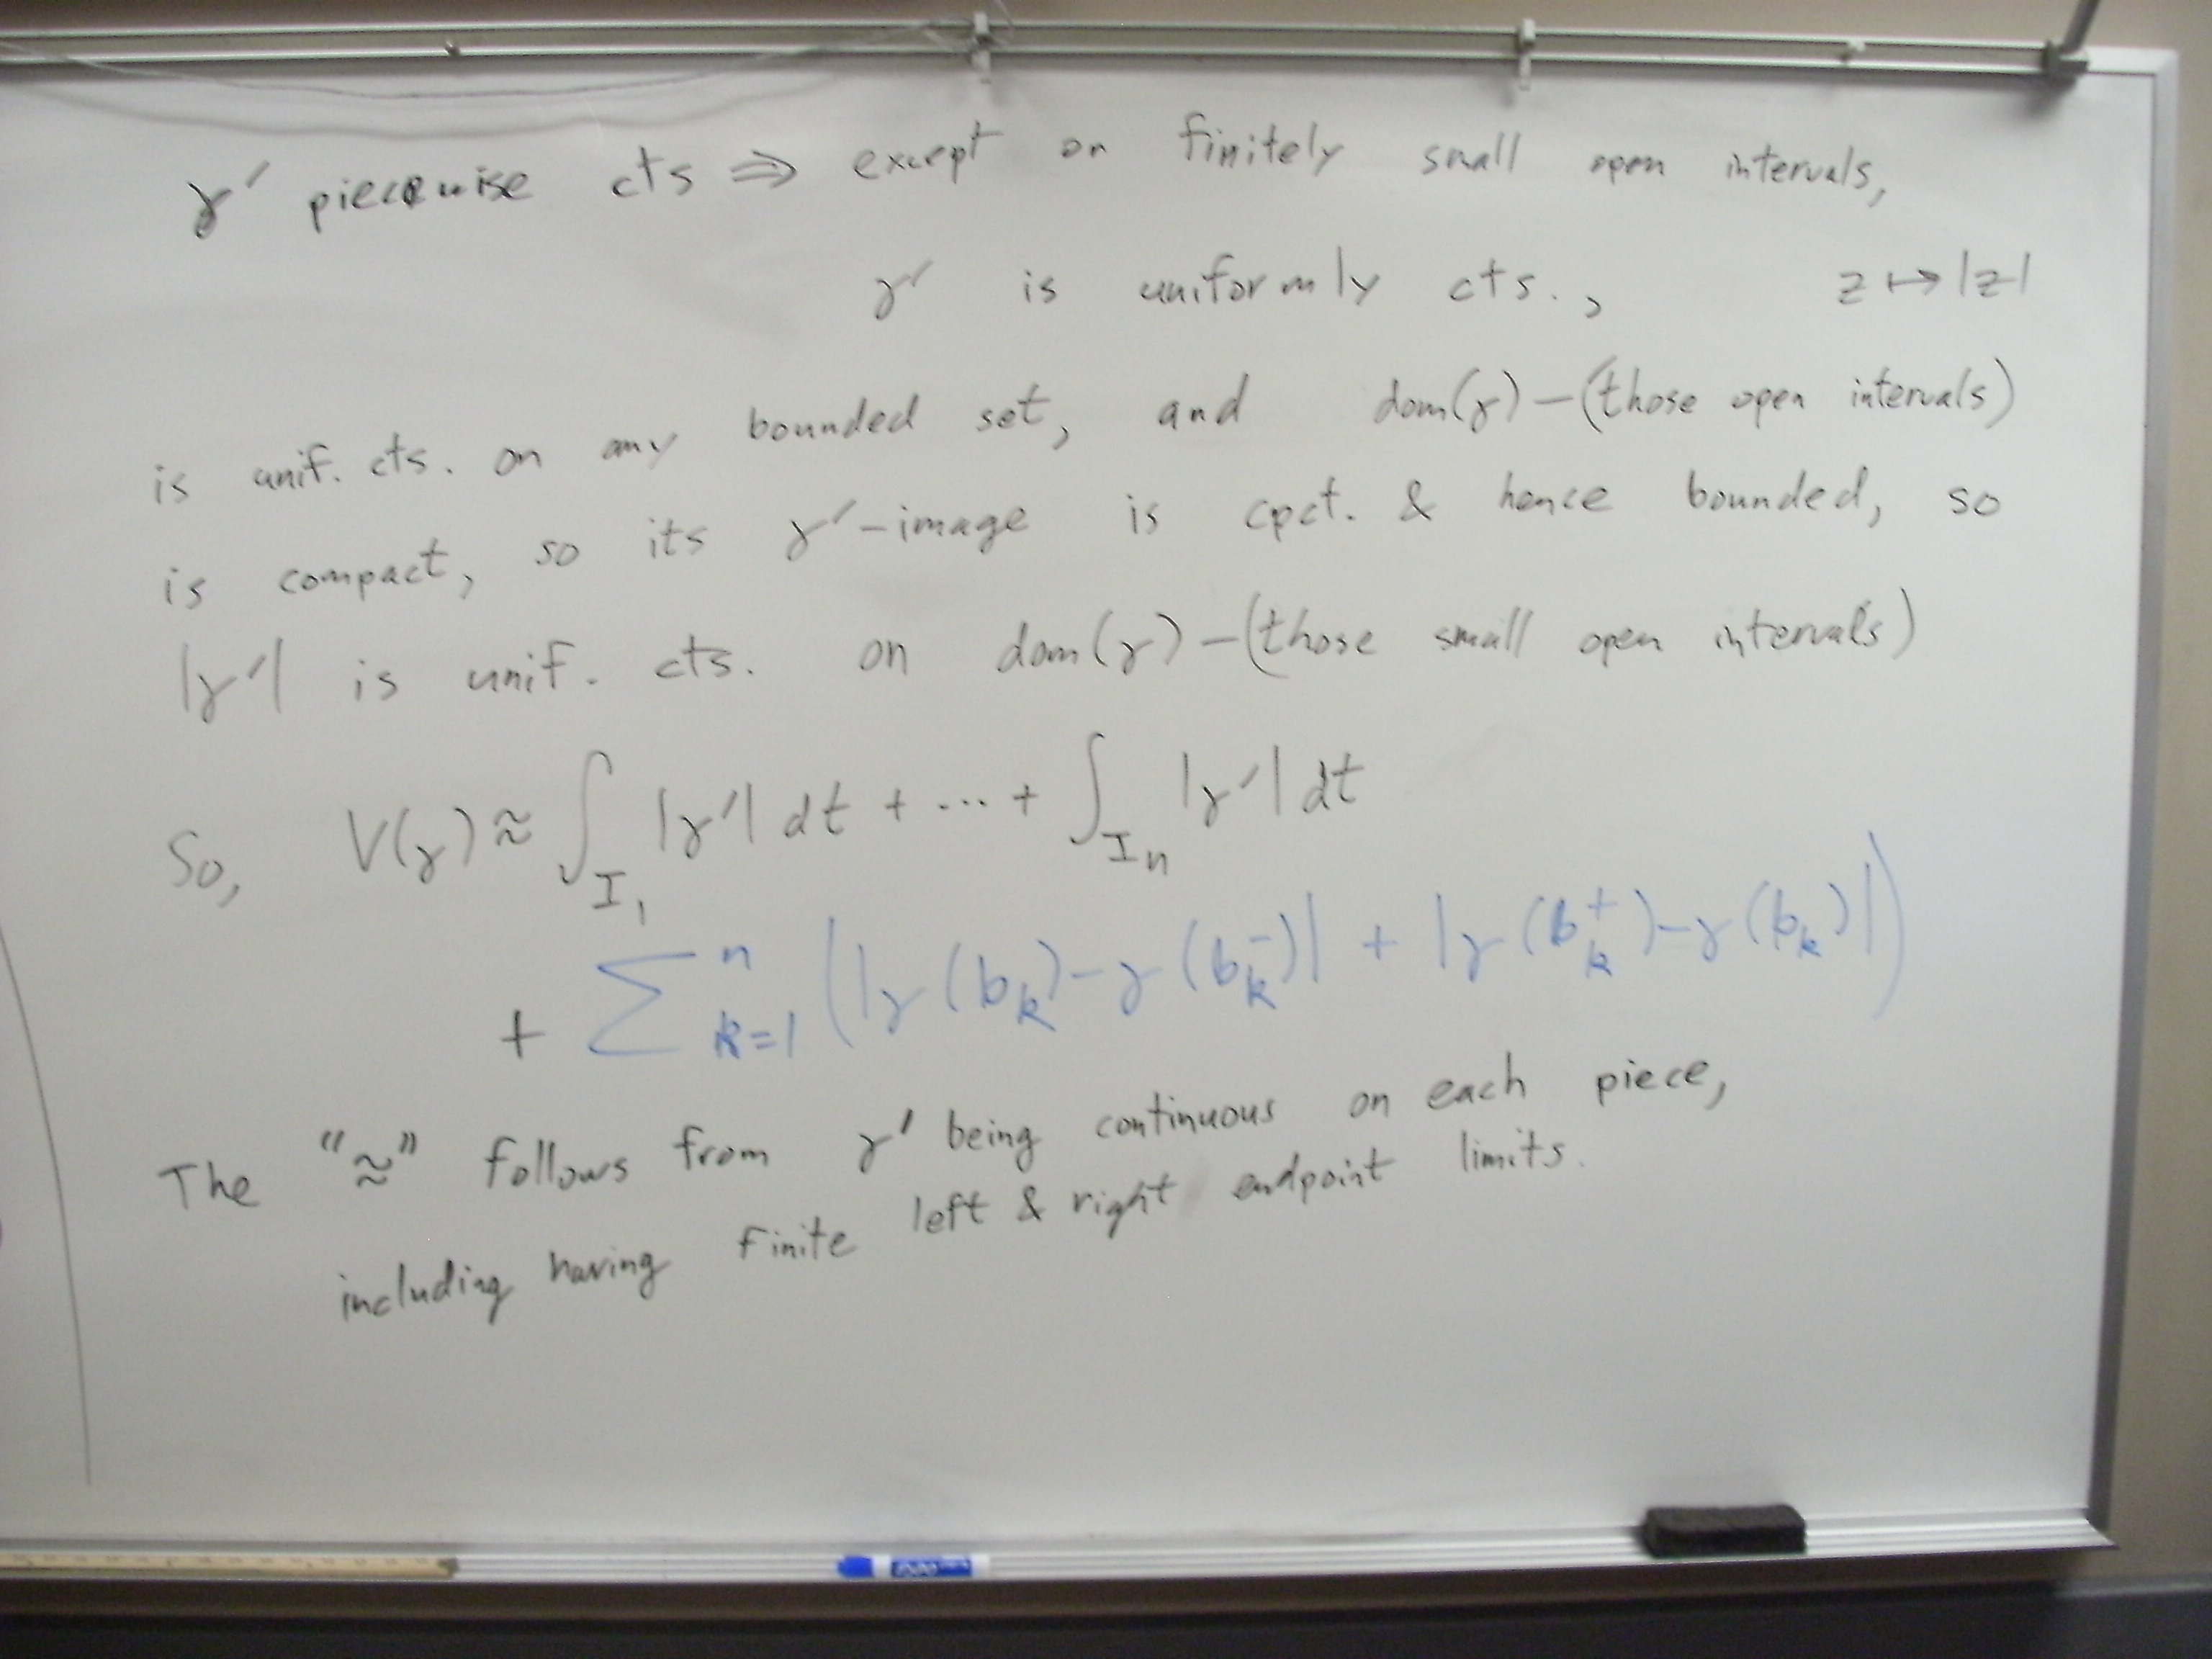 γ′ piecewise cts ⇒ except on finitely small open intervals,
γ′ is uniformly cts., z ↦ |z|
is unif. cts. on any bounded set, and dom(γ) – (those open intervals)
is compact, so its γ′-image is cpct. & hence bounded, so
|γ′| is unif. cts. on dom(γ) – (those small open intervals)
So, V(γ) ≈ ∫_{I_1} |γ′| dt + ... + ∫_{I_n} |γ′| dt
+ ∑_{k=1}^{n} (|γ(b_k) – γ(b_k^-)| + |γ(b_k^+) – γ(b_k)|)
The "≈" follows from γ′ being continuous on each piece,
including having finite left & right endpoint limits.